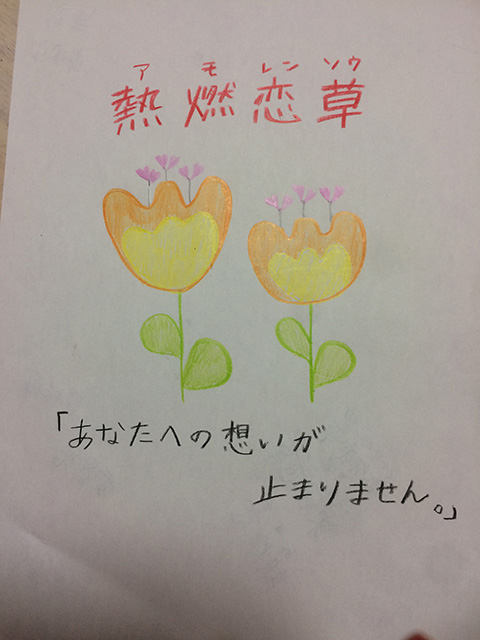 アモレンソウ
熱燃恋草
「あなたへの想いが
止まりません。」